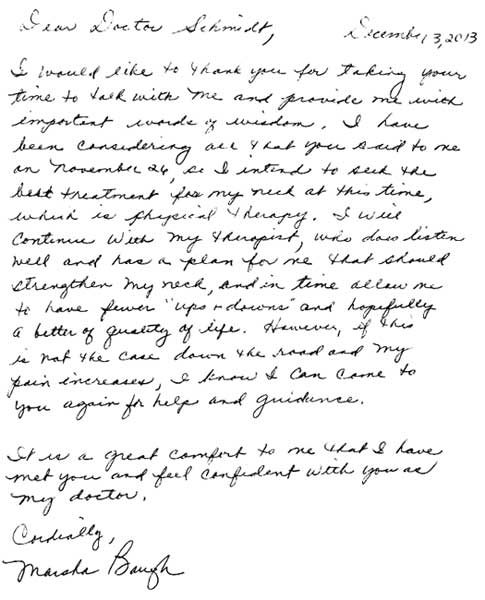 Dear Doctor Schmidt,
December 3, 2013
I would like to thank you for taking your
time to talk with me and provide me with
important words of wisdom. I have
been considering all that you said to me
on November 26, so I intend to seek the
best treatment for my neck at this time,
which is physical therapy. I will
continue with my therapist, who does listen
well and has a plan for me that should
strengthen my neck, and in time allow me
to have fewer "ups + downs" and hopefully
a better of quality of life. However, if this
is not the case down the road and my
pain increases, I know I can come to
you again for help and guidence.
It is a great comfort to me that I have
met you and feel confident with you as
my doctor.
Cordially,
Marsha Baugh